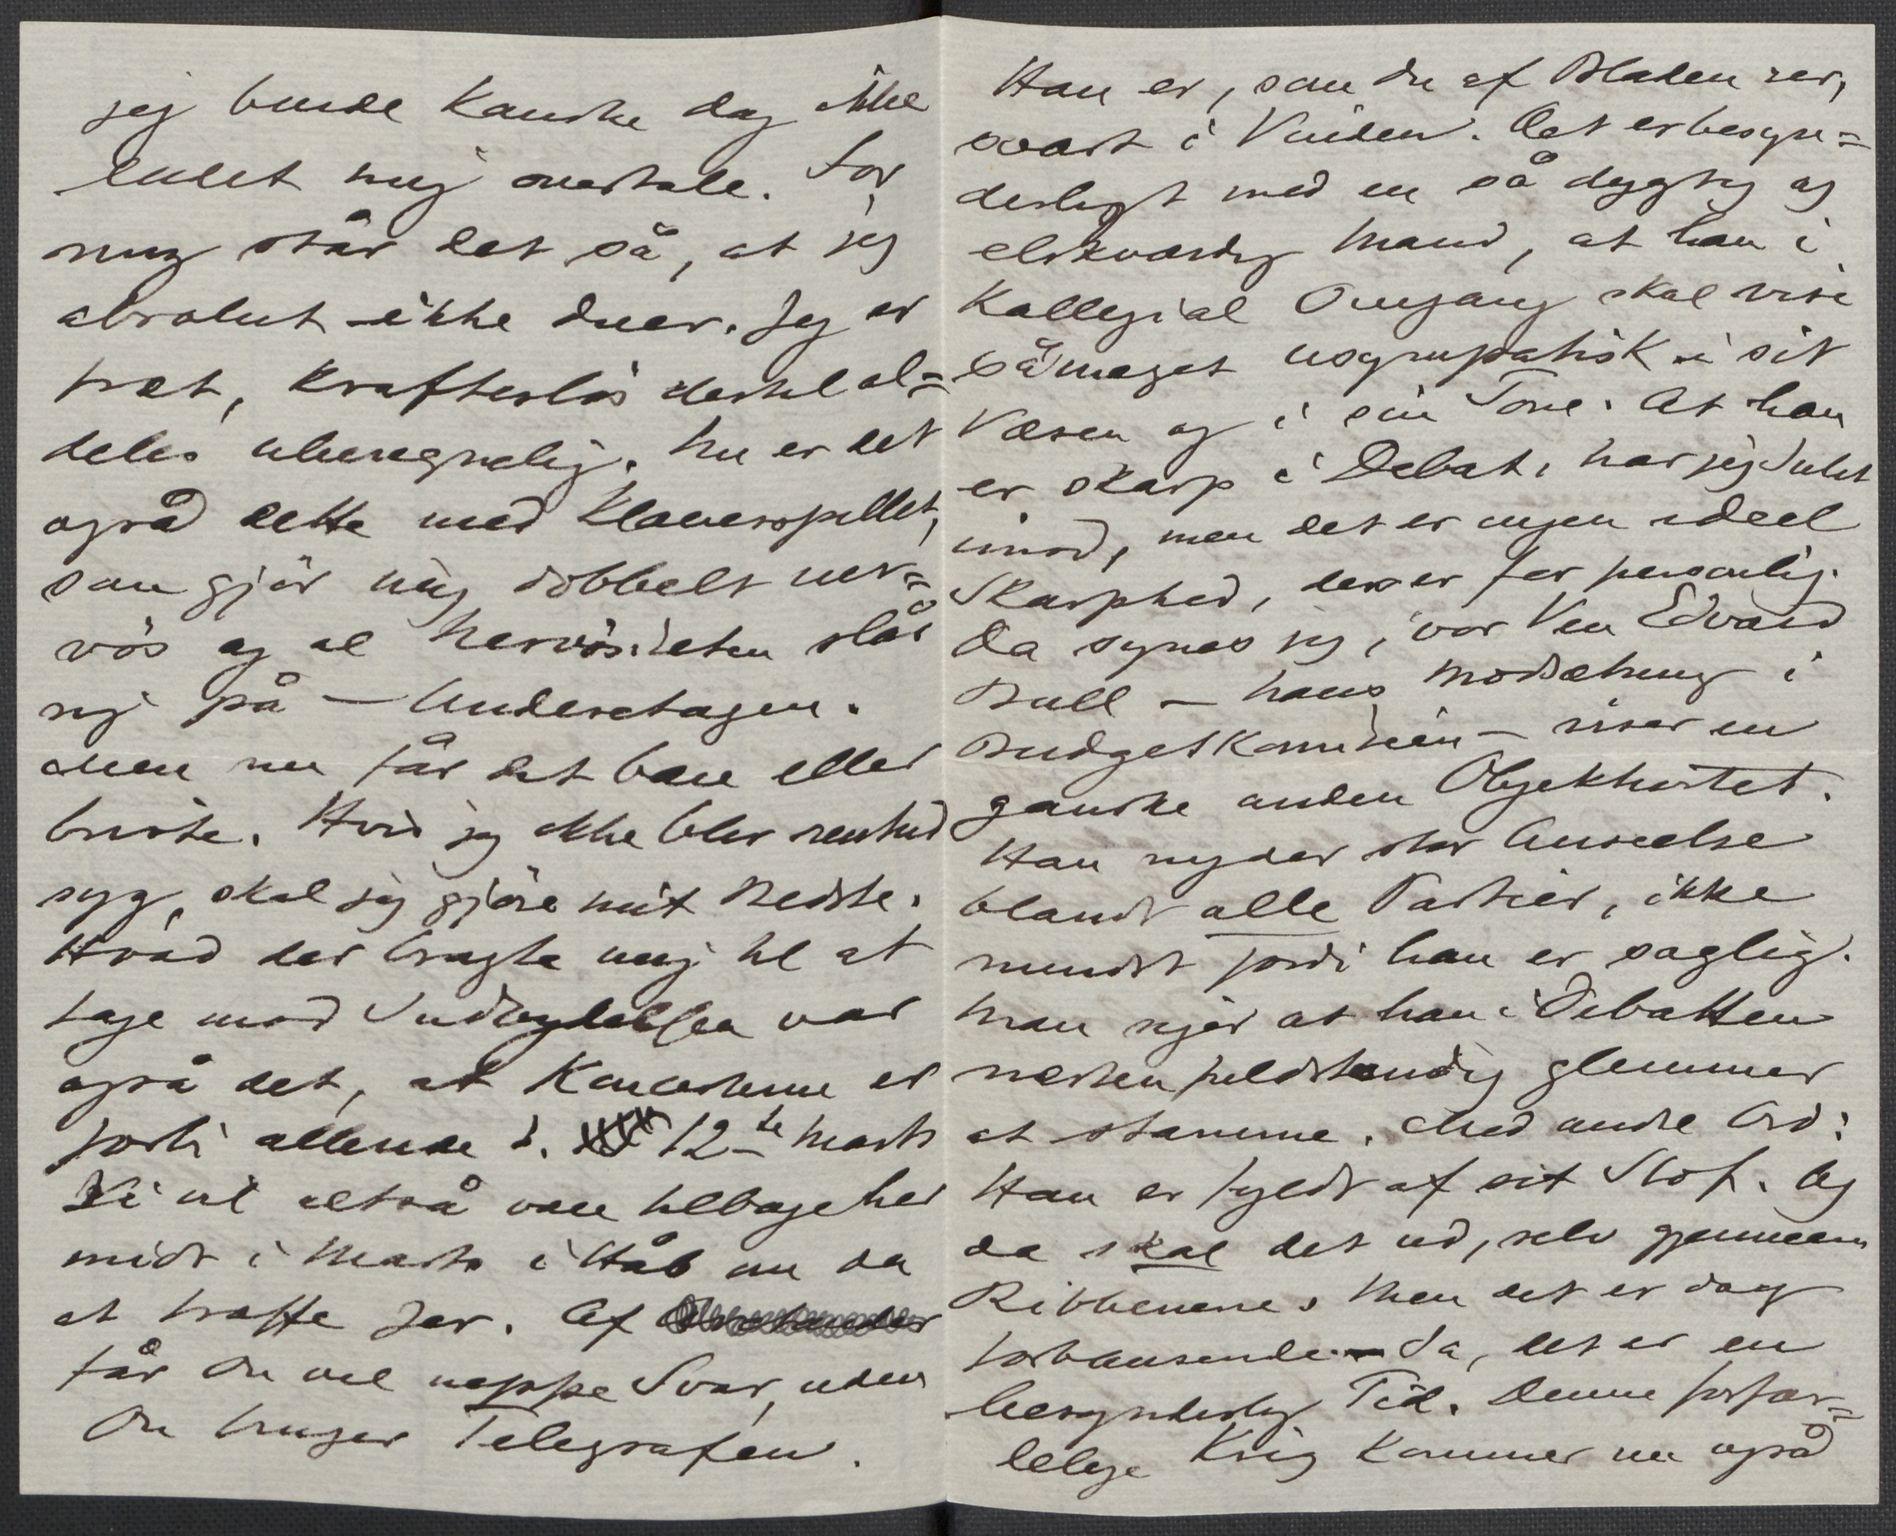 jeg burde kanske dog ikke
ladet mig overtale. For
mig står det så, at jeg
absolut ikke duer. Jeg er
træt, kraftesløs dertil al=
deles uberegnelig. Nu er det
også dette med Klaverspillet,
som gjør mig dobbelt ner=
vøs og al Nervøsiteten slår
sig på – Underetagen.
Men nu får det bære eller
briste. Hvis jeg ikke blir rent
syg, skal jeg gjøre mit Bedste.
Hvad der bragte mig til at
tage mod Indbydelsen var
også det, at Koncerterne er
forbi allerede d. 12te Marts
Vi vil altså være tilbage her
midt i Marts i Håb om da
at træffe Jer. Af
får Du vel neppe Svar, uden
Du bruger Telegrafen.
Han er, som Du af Bladene ser,
svært i Vinden. Det er besyn=
derligt med en så dygtig og
elskværdig Mand, at han i
kollegial Omgang skal vise
så meget usympatisk i sit
Væsen og i sin Tone. At han
er skarp i Debat, har jeg Intet
imod, men det er ingen ideel
Skarphed, den er for personlig.
Da synes jeg, vor Ven Edvard
Bull – hans Modsætning i
Budgetkomiteen – viser en
ganske anden Objektivitet.
Han nyder stor Anseelse
blandt alle Partier, ikke
mindst fordi han er saglig.
Man siger at han i Debatten
næsten fuldstændig glemmer
at stamme. Med andre Ord:
Han er fyldt af sit Stof. Og
da skal det ud, selv gjennem
Ribbenene. Men det er dog
forbausende. Ja, det er en
besynderlig Tid. Denne forfær=
delige Krig kommer nu også